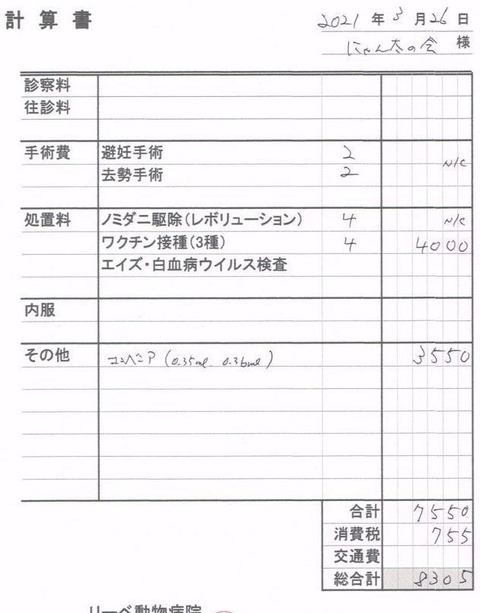 計算書
2021 年 3 月 26 日
にゃん太の会 様
診察料
往診料
手術費 避妊手術 2 N/C
去勢手術 2
処置料 ノミダニ駆除(レボリューション) 4 N/C
ワクチン接種(3種) 4 4000
エイズ・白血病ウイルス検査
内服
その他 コンベニア (0.35ml 0.36ml) 3550
合計 7550
消費税 755
交通費
総合計 8305
リーベ動物病院